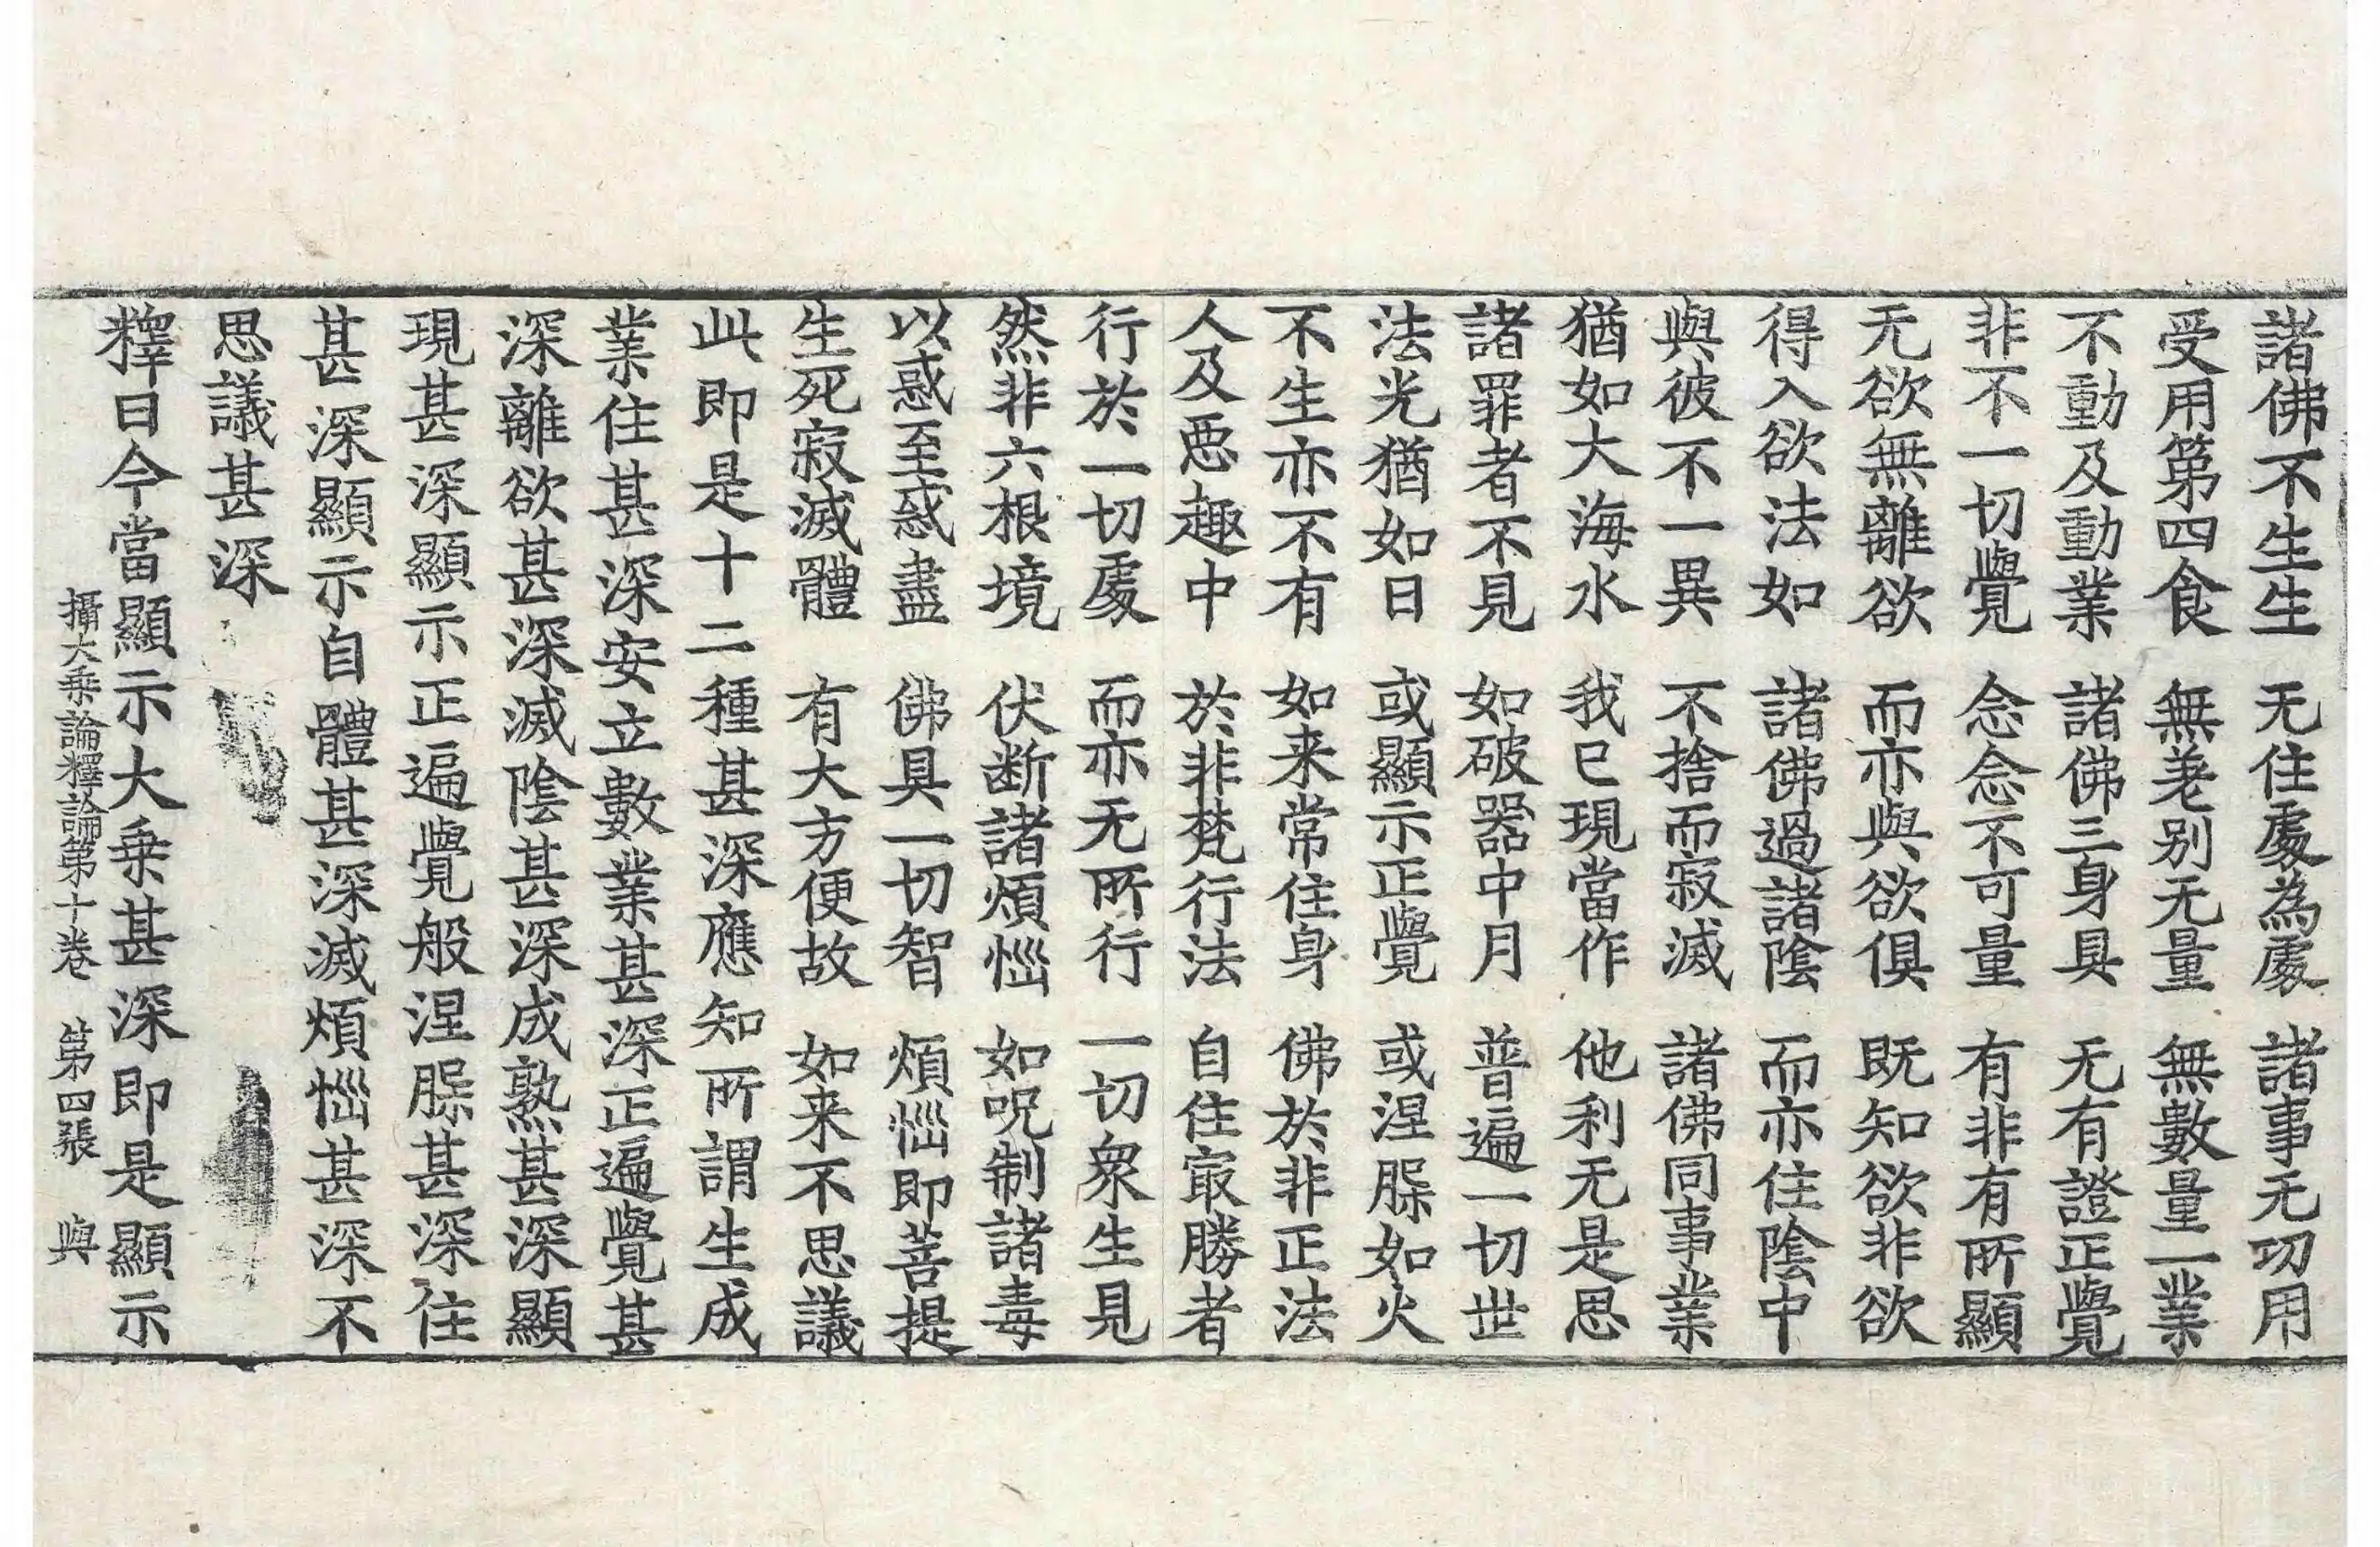 諸佛不生生　无住處為處　諸事无功用
受用第四食　無差别无量　無數量一業
不動及動業　諸佛三身具　无有證正覺
非不一切覺　念念不可量　有非有所顯
无欲無離欲　而亦與欲俱　既知欲非欲
得入欲法如　諸佛過諸陰　而亦住陰中
與彼不一異　不捨而寂滅　諸佛同事業
猶如大海水　我已現當作　他利无是思
諸罪者不見　如破器中月　普遍一切世
法光猶如日　或顯示正覺　或涅槃如火
不生亦不有　如来常住身　佛於非正法
人及惡趣中　於非梵行法　自住㝡勝者
行於一切處　而亦无所行　一切衆生見
然非六根境　伏断諸煩惱　如呪制諸毒
以惑至惑盡　佛具一切智　煩惱即菩提
生死寂滅體　有大方便故　如来不思議
此即是十二種甚深應知所謂生成
業住甚深安立數業甚深正遍覺甚
深離欲甚深滅陰甚深成熟甚深顯
現甚深顯示正遍覺般涅槃甚深住
甚深顯示自體甚深滅煩惱甚深不
思議甚深
釋曰今當顯示大乗甚深即是顯示
攝大乗論釋論第十卷　第四張　與